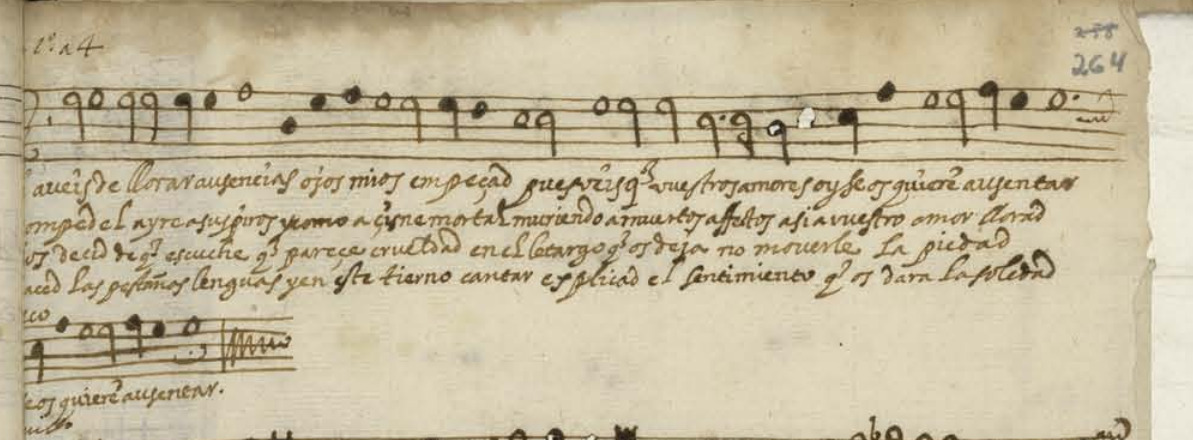 1º a 4
258
264
aueis de llorar ausencias ojos mios empeçad pues veis q̃ vuestros amores oy se os quierẽ ausentar
omped el ayre a suspiros y como a çisne mortal muriendo a muertos affectos asi a vuestro amor llorad
os decid de q̃ escuche q̃ pareçe crueldad en el letargo q̃ os deja no moverle la piedad
aced las pestañas lenguas y en este tierno cantar explicad el sentimiento q̃ os dara la soledad
co
e os quierẽ ausentar.